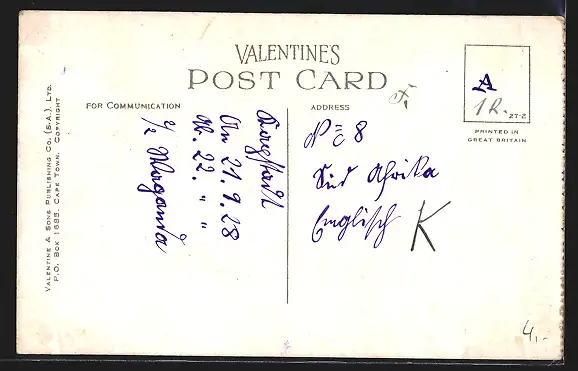 VALENTINES
POST CARD
FOR COMMUNICATION
ADDRESS
VALENTINE & SONS PUBLISHING CO. (S.A.), LTD.
P.O. BOX 1685, CAPE TOWN. COPYRIGHT
Kapstadt
An 21.9.28
Ab. 22. " "
No 8
Süd Afrika
Englisch
K
F.
A
1R.
27-2
PRINTED IN
GREAT BRITAIN
4,-